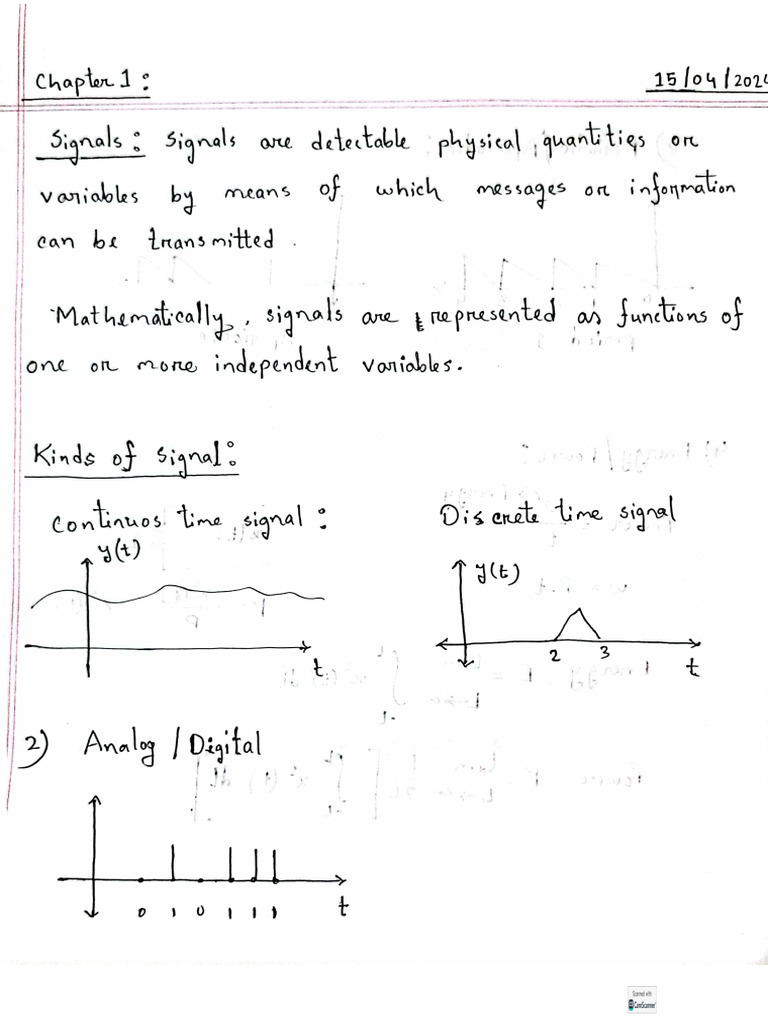 Chapter 1:
15/04/2024
Signals: Signals are detectable physical quantities or
variables by means of which messages or information
can be transmitted.
Mathematically, signals are represented as functions of
one or more independent variables.
Kinds of signal:
Continuos time signal:
Discrete time signal
y(t)
t
y(t)
2 3
t
2) Analog / Digital
t
0 1 0 1 1 1
Scanned with
CamScanner